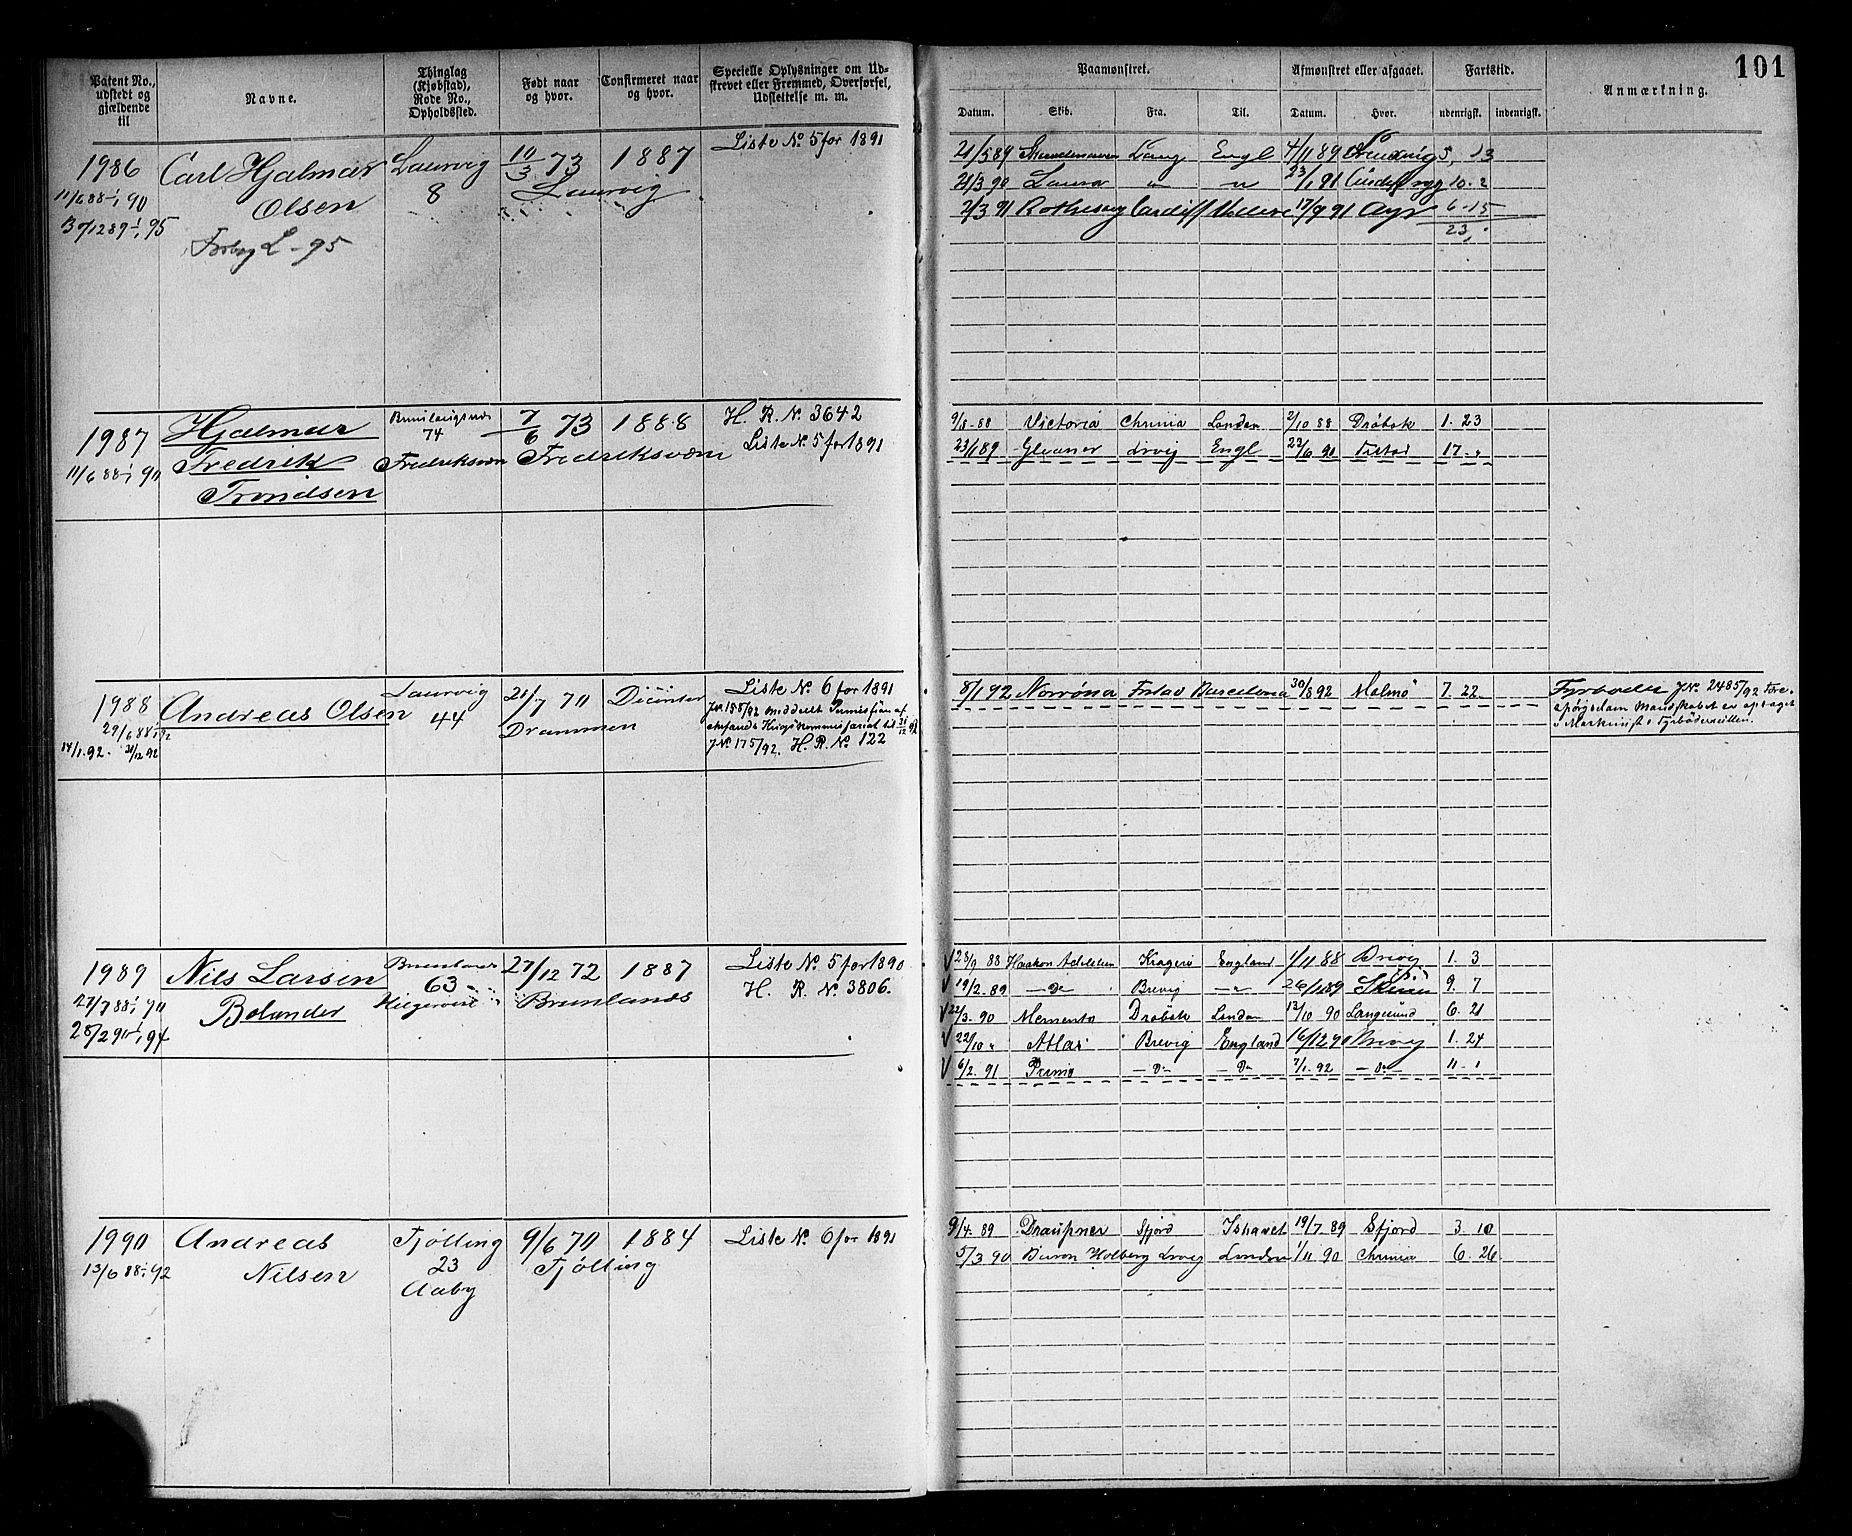 101
Patent No., udstedt og gjældende til
Navne.
Thinglag (Kjøbstad), Rode No., Opholdssted.
Født naar og hvor.
Confirmeret naar og hvor.
Specielle Oplysninger om Udskrevet eller Fremmed, Overførsel, Udslettelse m. m.
Paamønstret.
Afmønstret eller afgaaet.
Fartstid.
Anmærkning.
Datum. Skib. Fra. Til. Datum. Hvor. udenrigsk. indenrigsk.
1986 Carl Hjalmar Laurvig 10/3 73 1887 Liste No. 5 for 1891
11/6 88 1/1 90 Olsen 8 Laurvig
30/12 89 1/1 95
L - 95
21/5 89 Engl 4/11 89 5. 13
21/3 90 Laura " " 23/1 91 10. 2
2/3 91 Rothesay Cardiff 17/9 91 Ayr 6-15
23
1987 Hjalmar 74 7/6 73 1888 H. R. No. 3642
11/6 88 1/1 90 Fredrik Fredriksværn Fredriksværn Liste No. 5 for 1891
Trondsen
9/8 88 Victoria Chrnia London 2/10 88 Drøbak 1. 23
23/1 89 Gleaner Lrvig Engl 23/6 90 Frstad 17. "
1988 Andreas Olsen Laurvig 21/7 70 Liste No. 6 for 1891
29/6 88 1/1 92 44 Drammen
14/1 92 31/12 92
J No 175/92. H. R. No. 122
8/1 92 Norrøna Frstad Barcelona 30/8 92 Malmø 7. 22
Fyrbøder J No. 2485/92
1989 Nils Larsen 63 27/12 72 1887 Liste No. 5 for 1890
27/7 88 1/1 90 Bolander Brunlanæs H. R. No. 3806.
28/2 90 1/1 94
23/9 88 Haakon Adelsten Kragerø England 4/11 88 Brevig 1. 3
19/2 89 -Do- Brevig -"- 26/11 89 Skien 9. 7
22/3 90 Memento Drøbak London 13/10 90 Langesund 6. 21
22/10 " Atlas Brevig England 16/12 90 Brevig 1. 24
6/2 91 -Do- -Do- 7/1 92 -Do- 11. 1
1990 Andreas Tjølling 9/6 70 1884 Liste No. 6 for 1891
13/6 88 1/1 92 Nilsen 23 Tjølling
Aaby
9/4 89 Draupner Sfjord Ishavet 19/7 89 Sfjord 3. 10
5/3 90 Baron Holberg Lrvig London 1/11 90 Chrnia 6. 26